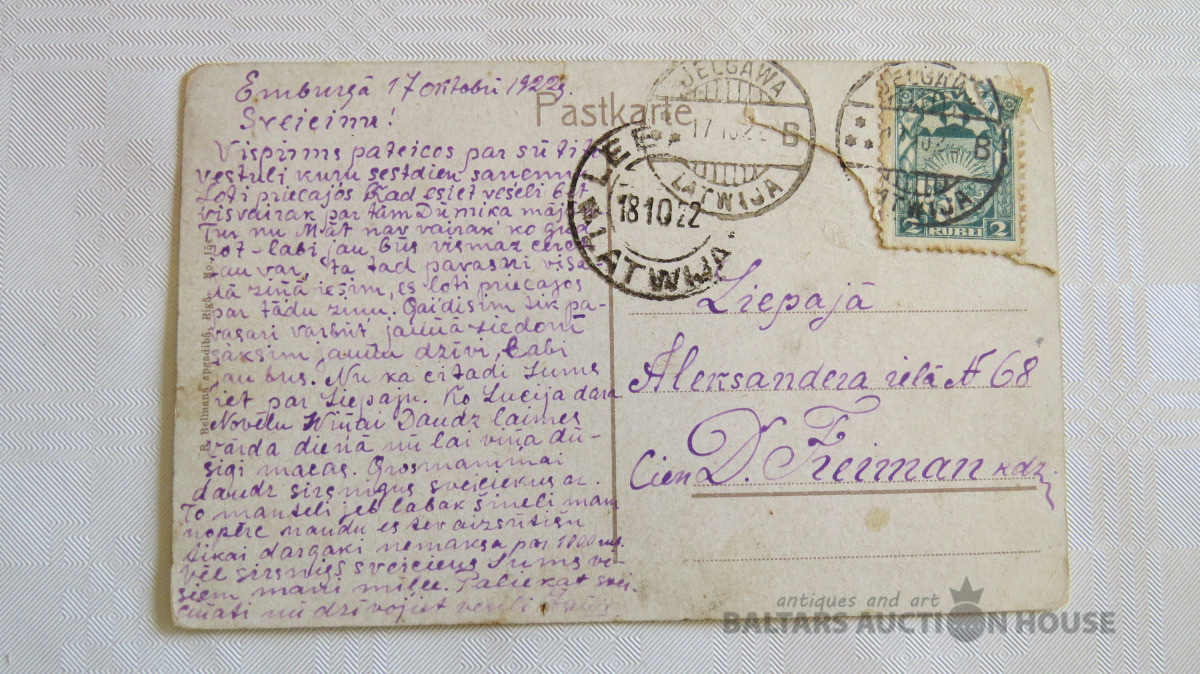 Emburgā 17 oktobrī 1922g.
Sveicinu!
Vispirms pateicos par sūtīt
vēstuli kuru sestdien saņemu
Loti priecajos Kad esiet veseli bet
visvairak par tam Dūmika māj
Tur nu Māt nav vairāk ko
labi jau būs vismaz
jau var, ta tad pavasari visa
dā ziņā iesim, es loti priecajos
par tādu ziņu. Gaidisim tik pa-
vasari varbūt jaunā ziedonī
saksim jaunu dzīvi, Labi
jau bus. Nu ka citadi Jums
iet par Liepaju. Ko Lucija dara
Novēlu Wiņai Daudz laimes
vārda dienā nu lai viņa dū-
šigi macas. Grosmammai
daudz sirsnigus sveicienus ar.
To manteli jeb labak šineli man
nopērc naudu es tev aizsūtišu
tikai dargaki nemaksa par 1000
vēl sirsnigs sveiciens Jums vi-
siem mani mīlee. Paliekat svei-
cinati nu dzivojiet veseli
Pastkarte
JELGAWA
17 10 22
B
LATWIJA
LATWIJA
18 10 22
JELGAWA
B
LATWIJA
2 RUBLI 2
Liepajā
Aleksandera ielā № 68
Cien D. Freiman kdz.
antiques and art
BALTARS AUCTION HOUSE